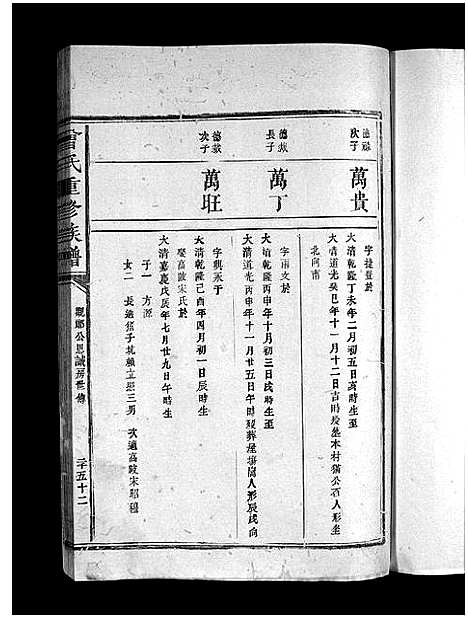 德祿次子
萬貴
字捷登於
大清乾隆丁未年二月初五日亥時生至
大清道光癸巳年十一月十二日吉時歿墓本村貓公石人形坐
北向南
德裁長子
萬丁
字南交於
大清乾隆丙申年十月初三日戌時生至
大清道光丙申年十一月廿五日午時歿葬人形辰戌向
德裁次子
萬旺
字興於
大清乾隆己酉年四月初一日辰時生
娶高陂宋氏於
大清嘉慶戊辰年七月廿九日午時生
子一 方源
女二 長適 次適高陂宋
曾氏重修族譜
觀鄉公恩誠房世傳
二千五十二